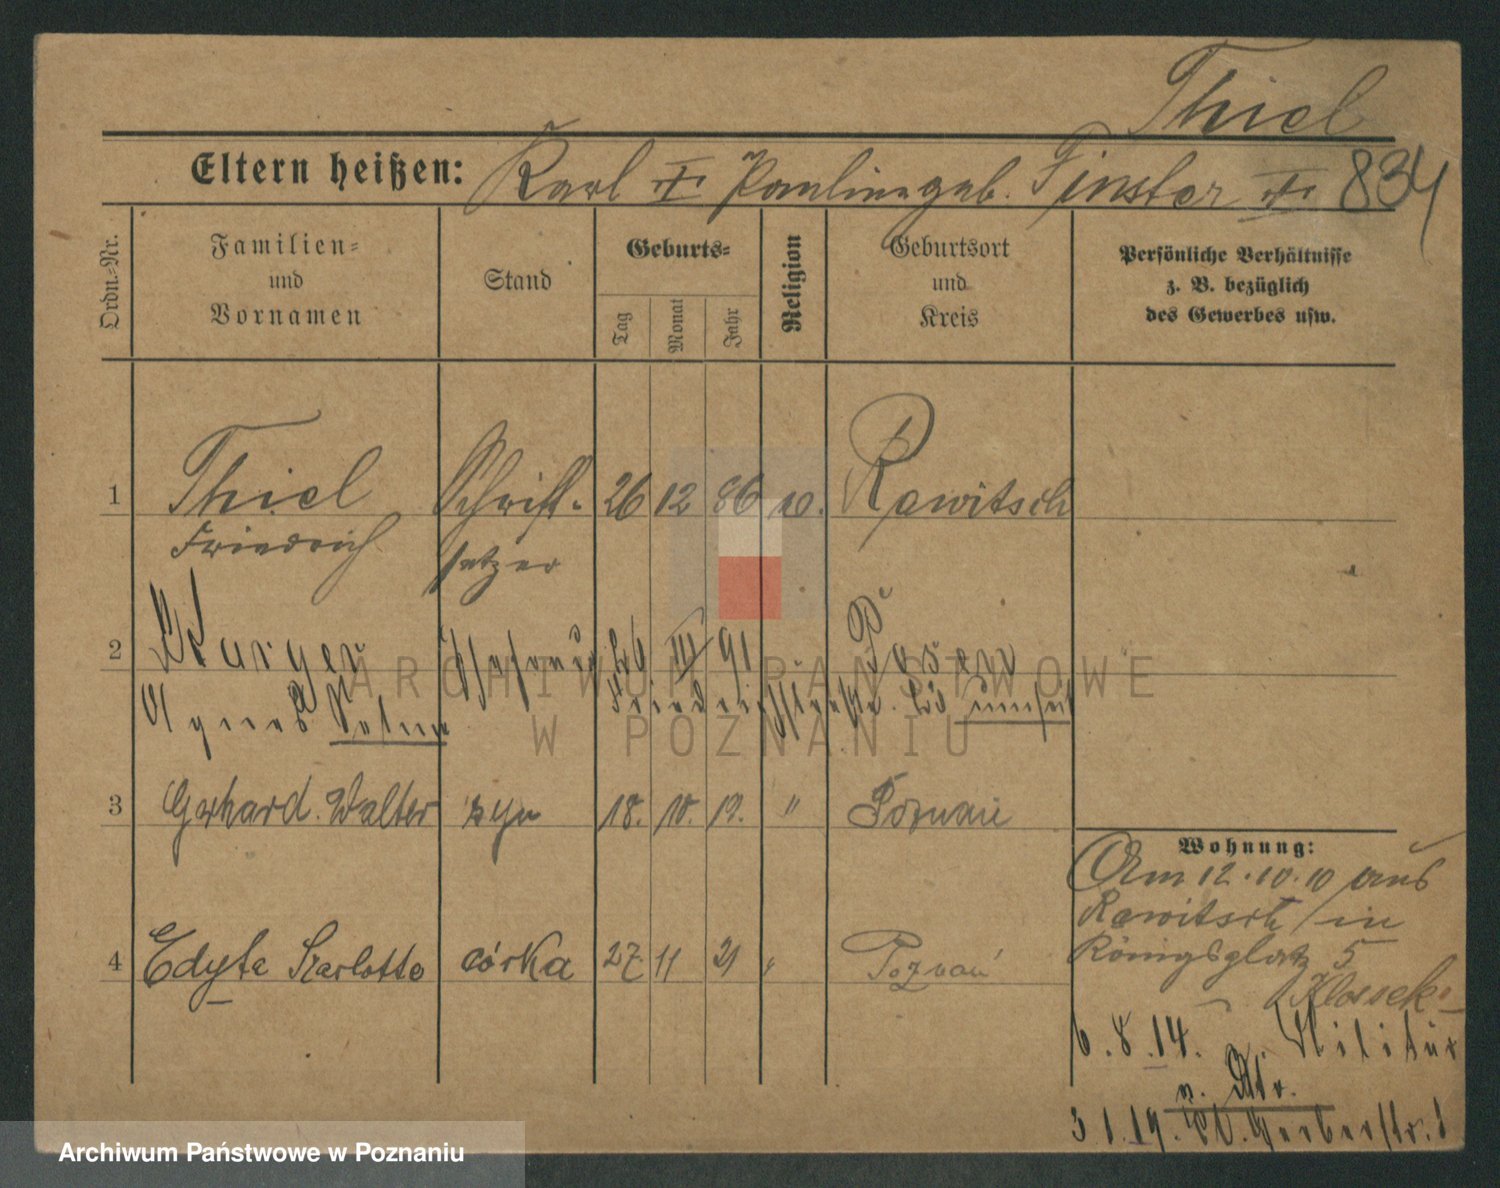 Thiel
Eltern heißen: Karl Pauline geb. Finster 834
Ordn.=Nr.
Familien=
und
Vornamen
Stand
Geburts=
Tag
Monat
Jahr
Religion
Geburtsort
und
Kreis
Persönliche Verhältnisse
z. B. bezüglich
des Gewerbes usw.
1 Thiel Schrift- 26 12 86 Rawitsch
Friedrich setzer
2 26 III 91 Posen
Agnes
3 Gerhard Walter syn 18. 10. 19. " Poznań
4 Edyta Szarlotte córka 27 11 21 " Poznań
Wohnung:
Am 12.10.10 aus
Rawitsch in
Königsplatz 5
6.8.14. Militär
3 1.19. Gerberstr. 1
ARCHIWUM PAŃSTWOWE
W POZNANIU
Archiwum Państwowe w Poznaniu